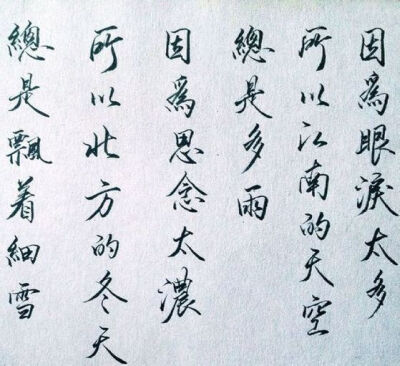 因爲眼淚太多
所以江南的天空
總是多雨
因爲思念太濃
所以北方的冬天
總是飄着細雪